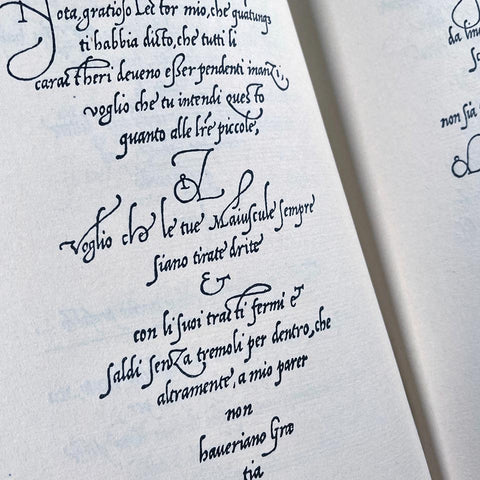 Nota, gratioso Lettor mio, che quatunqз
ti habbia ditto, che tutti li
caractheri deveno esser pendenti inanzi,
voglio che tu intendi questo
quanto alle lr̃e piccole,
Et
Voglio che le tue Maiuscule sempre
siano tirate drite
&
con li suoi tratti fermi e
saldi senza tremoli per dentro, che
altramente, a mio parer
non
haveriano Græ
tia
non sia